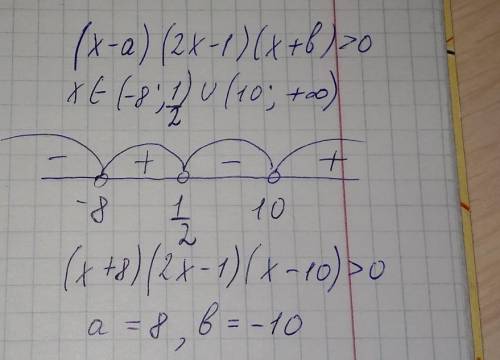 (x-a)(2x-1)(x+b)>0
x∈(-8; 1/2)∪(10; +∞)
- + - +
-8 1/2 10
(x+8)(2x-1)(x-10)>0
a = 8, b = -10